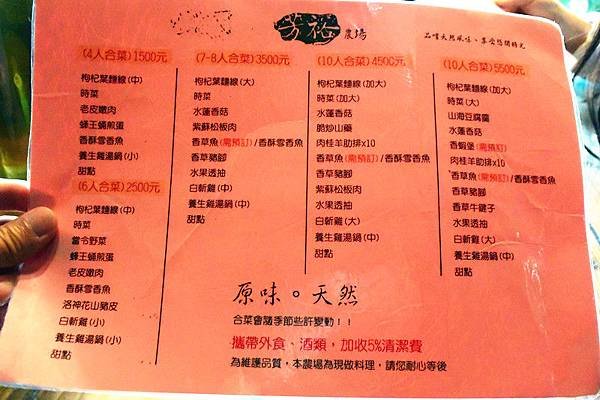 芳裕 農場
品嚐天然風味、享受悠閒時光
(4人合菜) 1500元
枸杞葉麵線(中)
時菜
老皮嫩肉
蜂王蛹煎蛋
香酥雪香魚
養生雞湯鍋(小)
甜點
(6人合菜) 2500元
枸杞葉麵線(中)
時菜
當令野菜
蜂王蛹煎蛋
老皮嫩肉
香酥雪香魚
洛神花山豬皮
白斬雞(小)
養生雞湯鍋(小)
甜點
(7-8人合菜) 3500元
枸杞葉麵線(大)
時菜
水蓮香菇
紫蘇松板肉
香草魚(需預訂)/香酥雪香魚
香草豬腳
水果透抽
白斬雞(中)
養生雞湯鍋(中)
甜點
(10人合菜) 4500元
枸杞葉麵線(加大)
時菜(加大)
水蓮香菇
脆炒山藥
肉桂羊肋排x10
香草魚(需預訂)/香酥雪香魚
香草豬腳
紫蘇松板肉
水果透抽
白斬雞(大)
養生雞湯鍋(中)
甜點
(10人合菜) 5500元
枸杞葉麵線(加大)
時菜(大)
山海豆腐羹
水蓮香菇
香蝦堡(需預訂)
肉桂羊肋排x10
香草魚(需預訂)/香酥雪香魚
香草豬腳
香草牛腱子
水果透抽
白斬雞(大)
養生雞湯鍋(中)
甜點
原味。天然
合菜會隨季節些許變動！！
攜帶外食、酒類，加收5%清潔費
為維護品質，本農場為現做料理，請您耐心等後